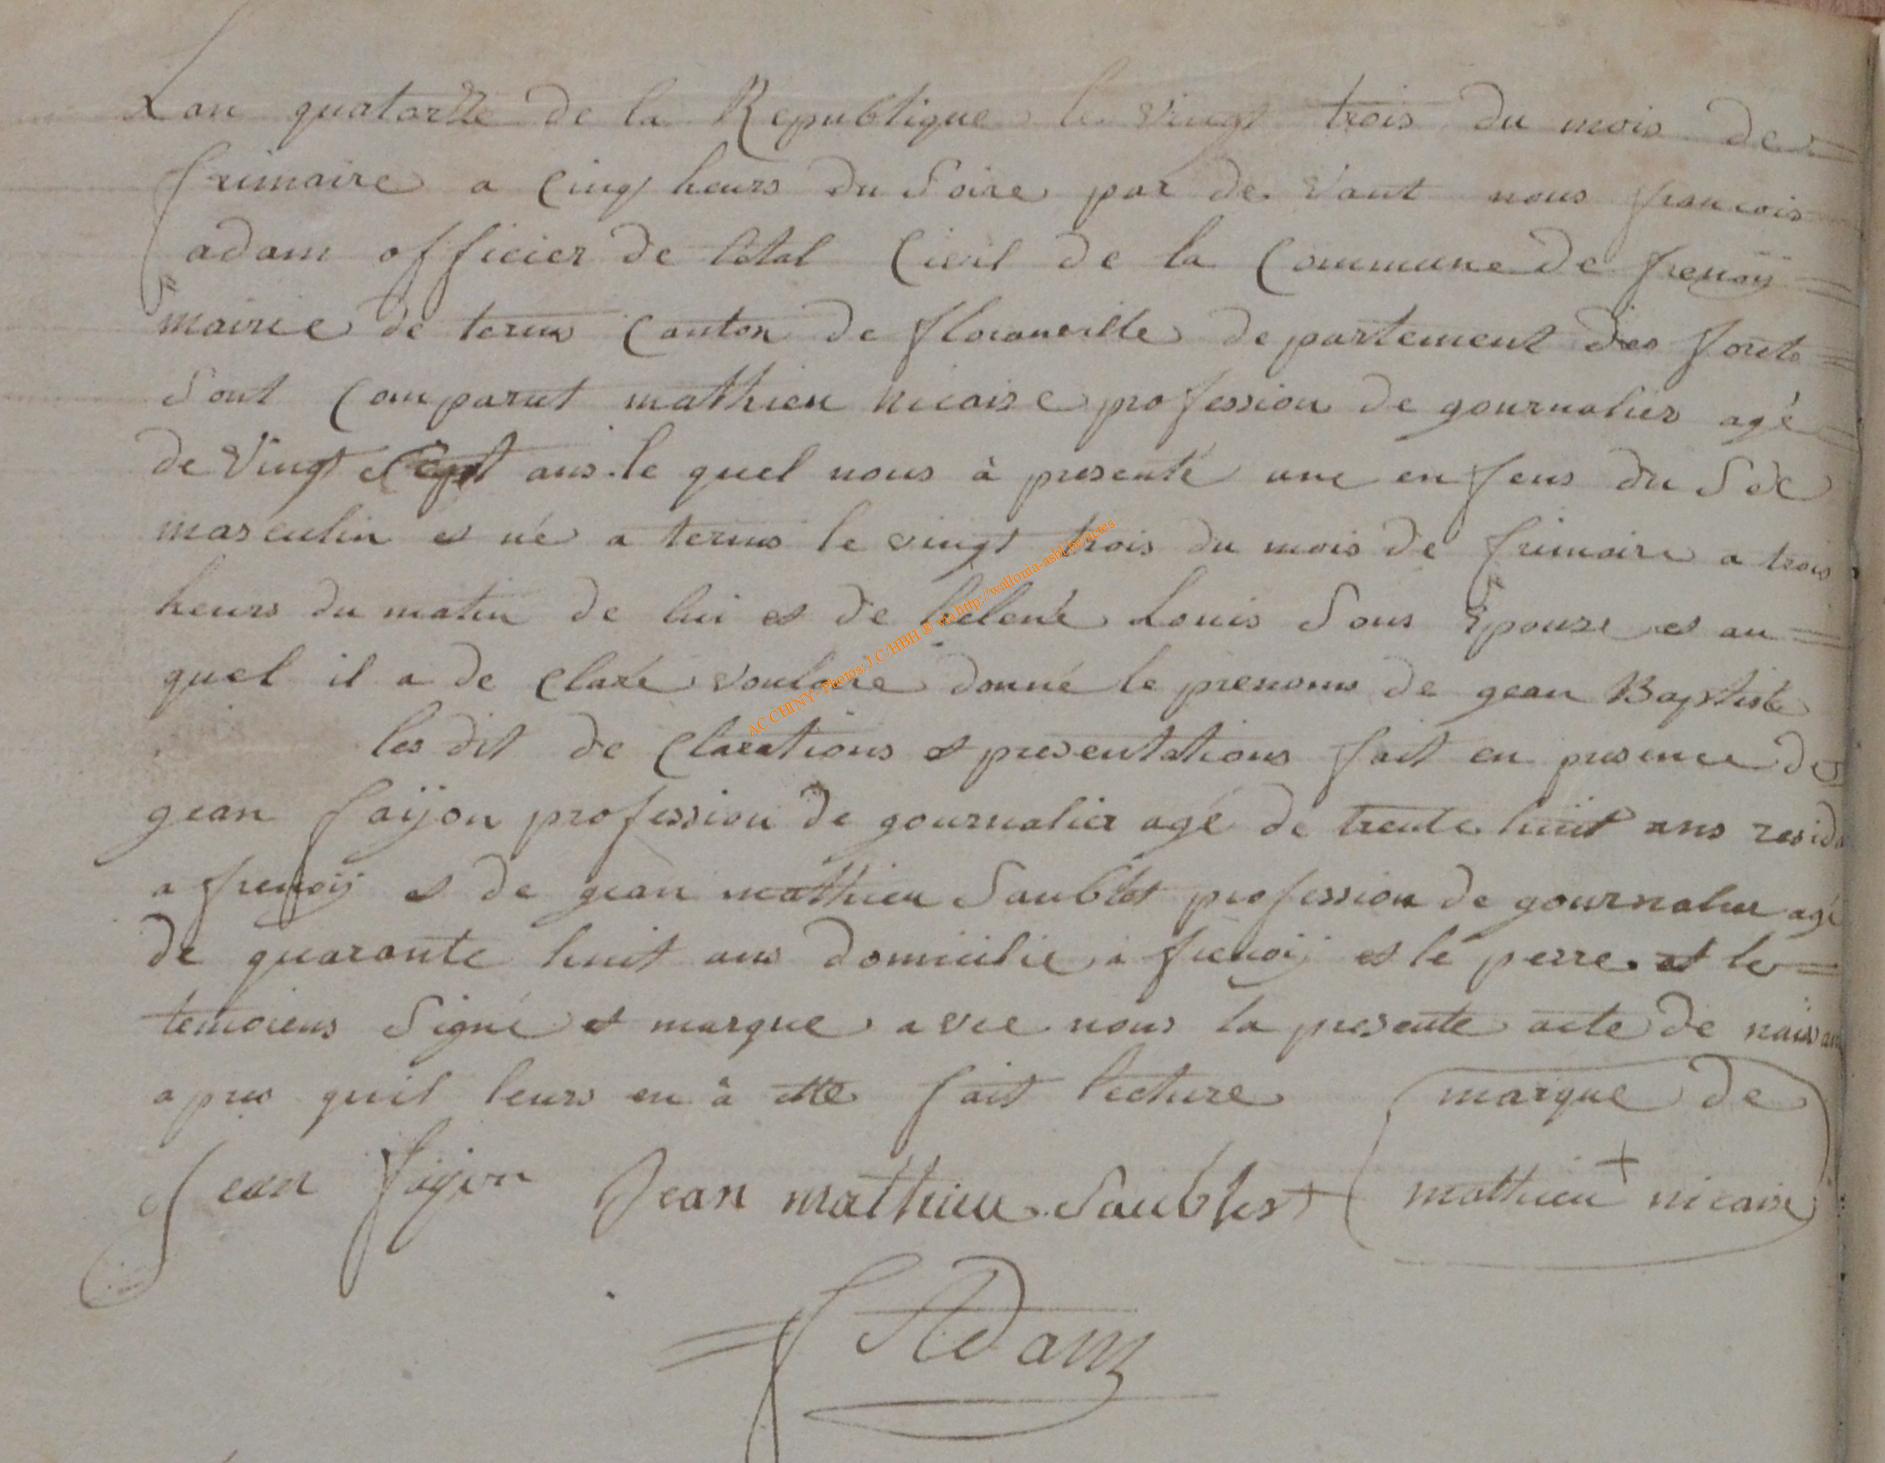 Lan quatorze de la Republique le vingt trois du mois de
frimaire a cinq heurs du Soire par de vant nous francois
adam officier de létat Civil de la Commune de frenoÿ
mairie de termes Canton de floranville departement des forets
Sont Comparut mathieu nicaise profession de gournalier agé
de vingt ans le quel nous à presenté une enfens du Sexe
masculin et né a termes le vingt trois du mois de frimaire a trois
heurs du matin de lui et de helene Louis Sons Epouse et au
quel il a de claré vouloire donné le prenoms de gean Baptiste
les dit de Clarations et presentations fait en presence de
gean faÿon profession de gournalier agé de trente huit ans resid
a frenoÿ et de gean mathieu Saublet profession de gournalier agé
de quarante huit ans domicilié a frenoÿ et le perre et le
temoiens Signé et marque avec nous la presente acte de naissan
apres quil leurs en à été fait lecture marque de
Jean fayon Jean mathieu Saublet mathieu + nicaise
f Adam
AC CHINY- Photos J C/HBH & http://wallonia-asbl.be/actes